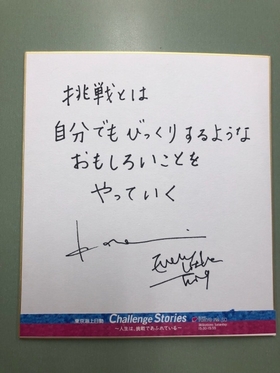 挑戦とは
自分でもびっくりするような
おもしろいことを
やっていく
東京海上日動 Challenge Stories
～人生は、挑戦であふれている～